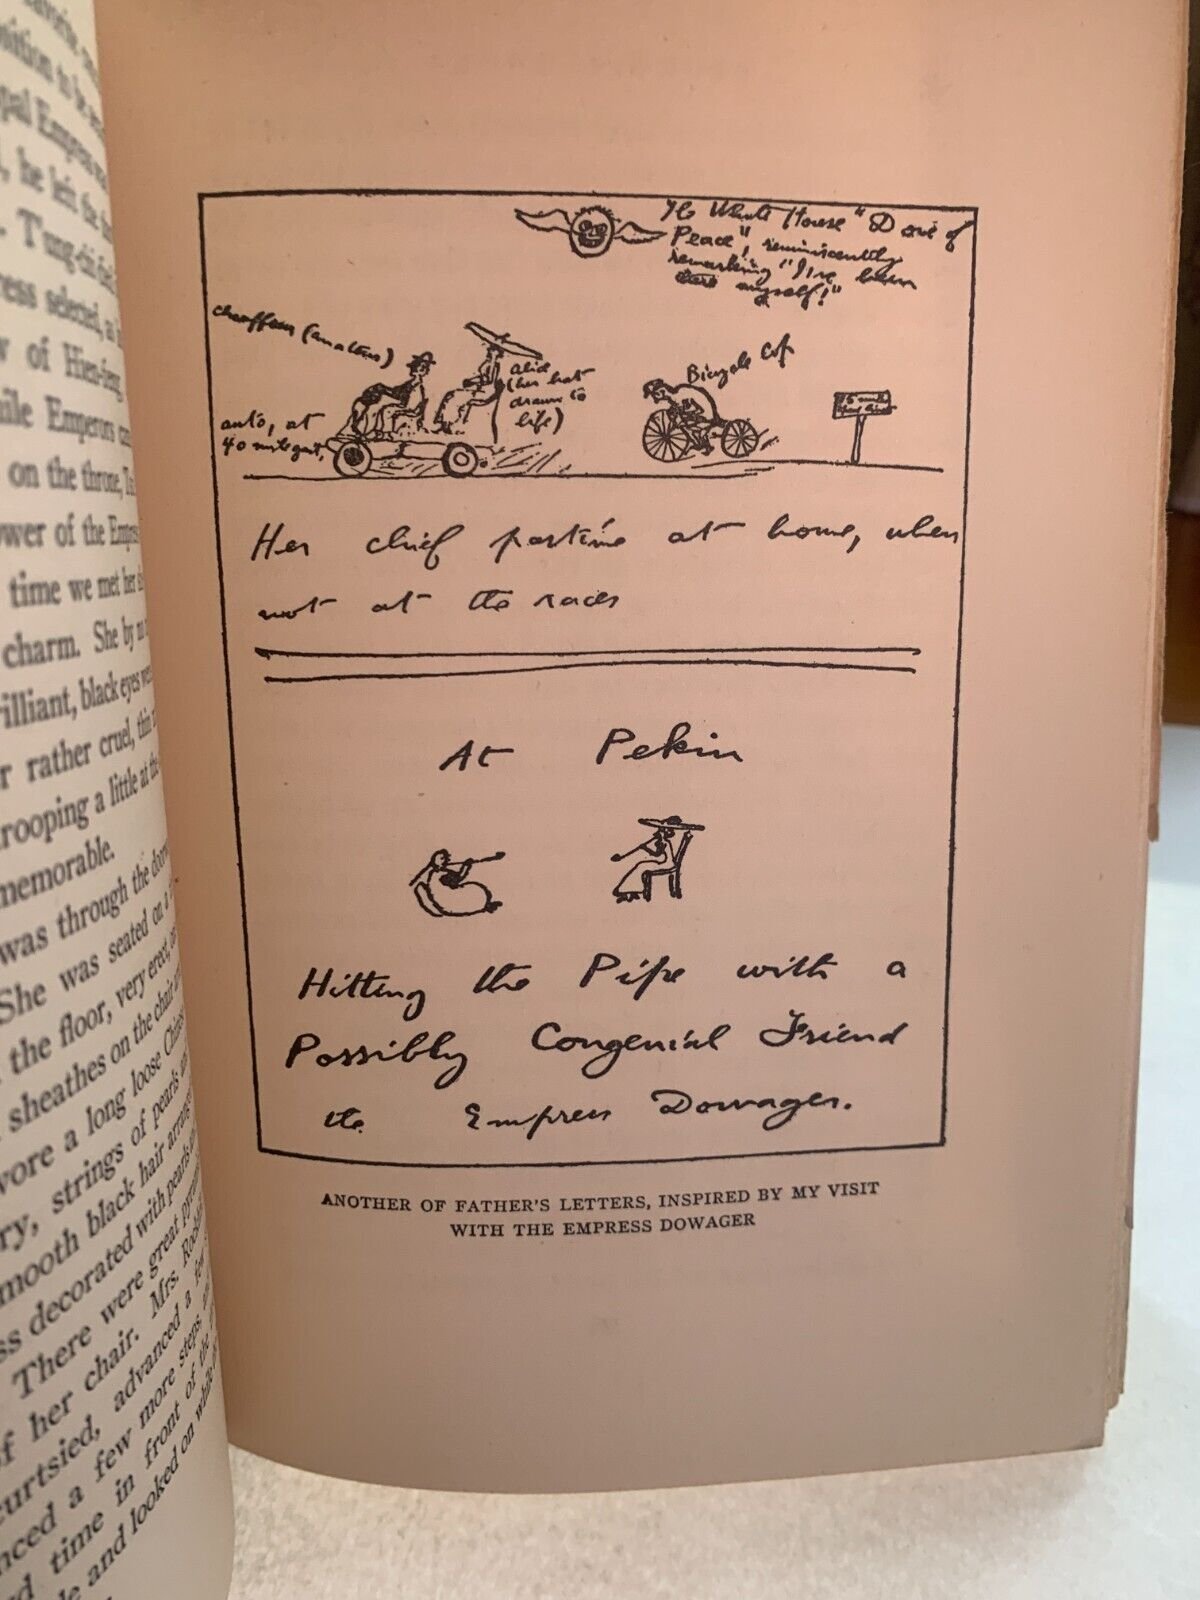 avorite,
osition to be
opal Empress
, he left the
. Tung-chi
ress selected, as
w of Hien-feng,
hile Emperors
on the throne,
ower of the Empress
time we met her
charm. She by no
rilliant, black eyes were
r rather cruel, thin
rooping a little at the
memorable.
was through the
She was seated on a
the floor, very erect,
sheathes on the chair
wore a long loose Chinese
ry, strings of pearls
smooth black hair arranged
ss decorated with pearls
There were great
of her chair. Mrs.
curtsied, advanced a few
nced a few more steps,
time in front of the
de and looked on while
The White House "Dove of
Peace", reminiscently
remarking "I've been
there myself!"
chauffeur (amateur)
Alice
(her hat
drawn to
life)
Bicycle Cop
auto, at
40 miles gait,
Her chief pastime at home, when
not at the races
At Pekin
Hitting the Pipe with a
Possibly Congenial Friend
the Empress Dowager.
ANOTHER OF FATHER'S LETTERS, INSPIRED BY MY VISIT
WITH THE EMPRESS DOWAGER